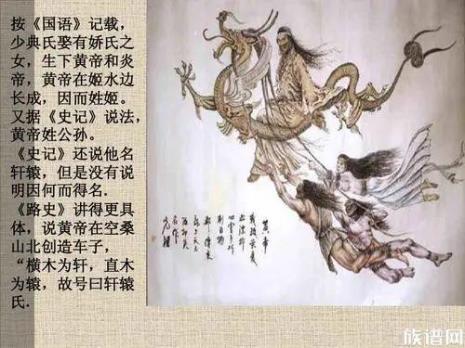 按《国语》记载，
少典氏娶有娇氏之
女，生下黄帝和炎
帝，黄帝在姬水边
长成，因而姓姬。
又据《史记》说法，
黄帝姓公孙。
《史记》还说他名
轩辕，但是没有说
明因何而得名.
《路史》讲得更具
体，说黄帝在空桑
山北创造车子，
“横木为轩，直木
为辕，故号曰轩辕
氏.
黄帝
族谱网